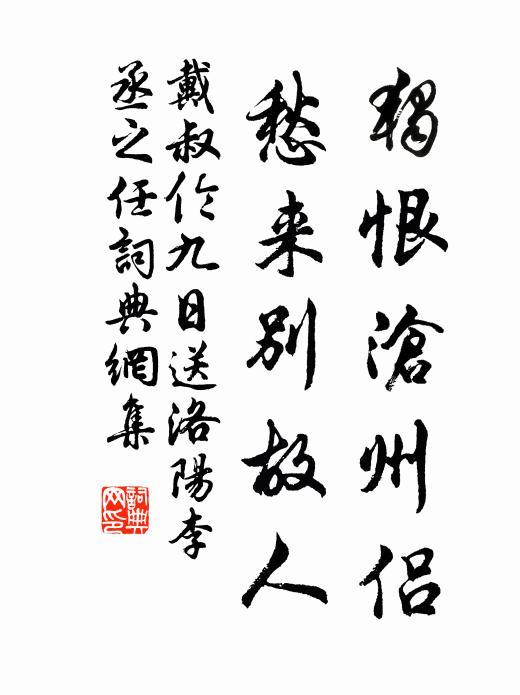 獨恨滄州侶
愁来別故人
戴叔伦九日送洛陽李
丞之任詞典網集
詞典网印